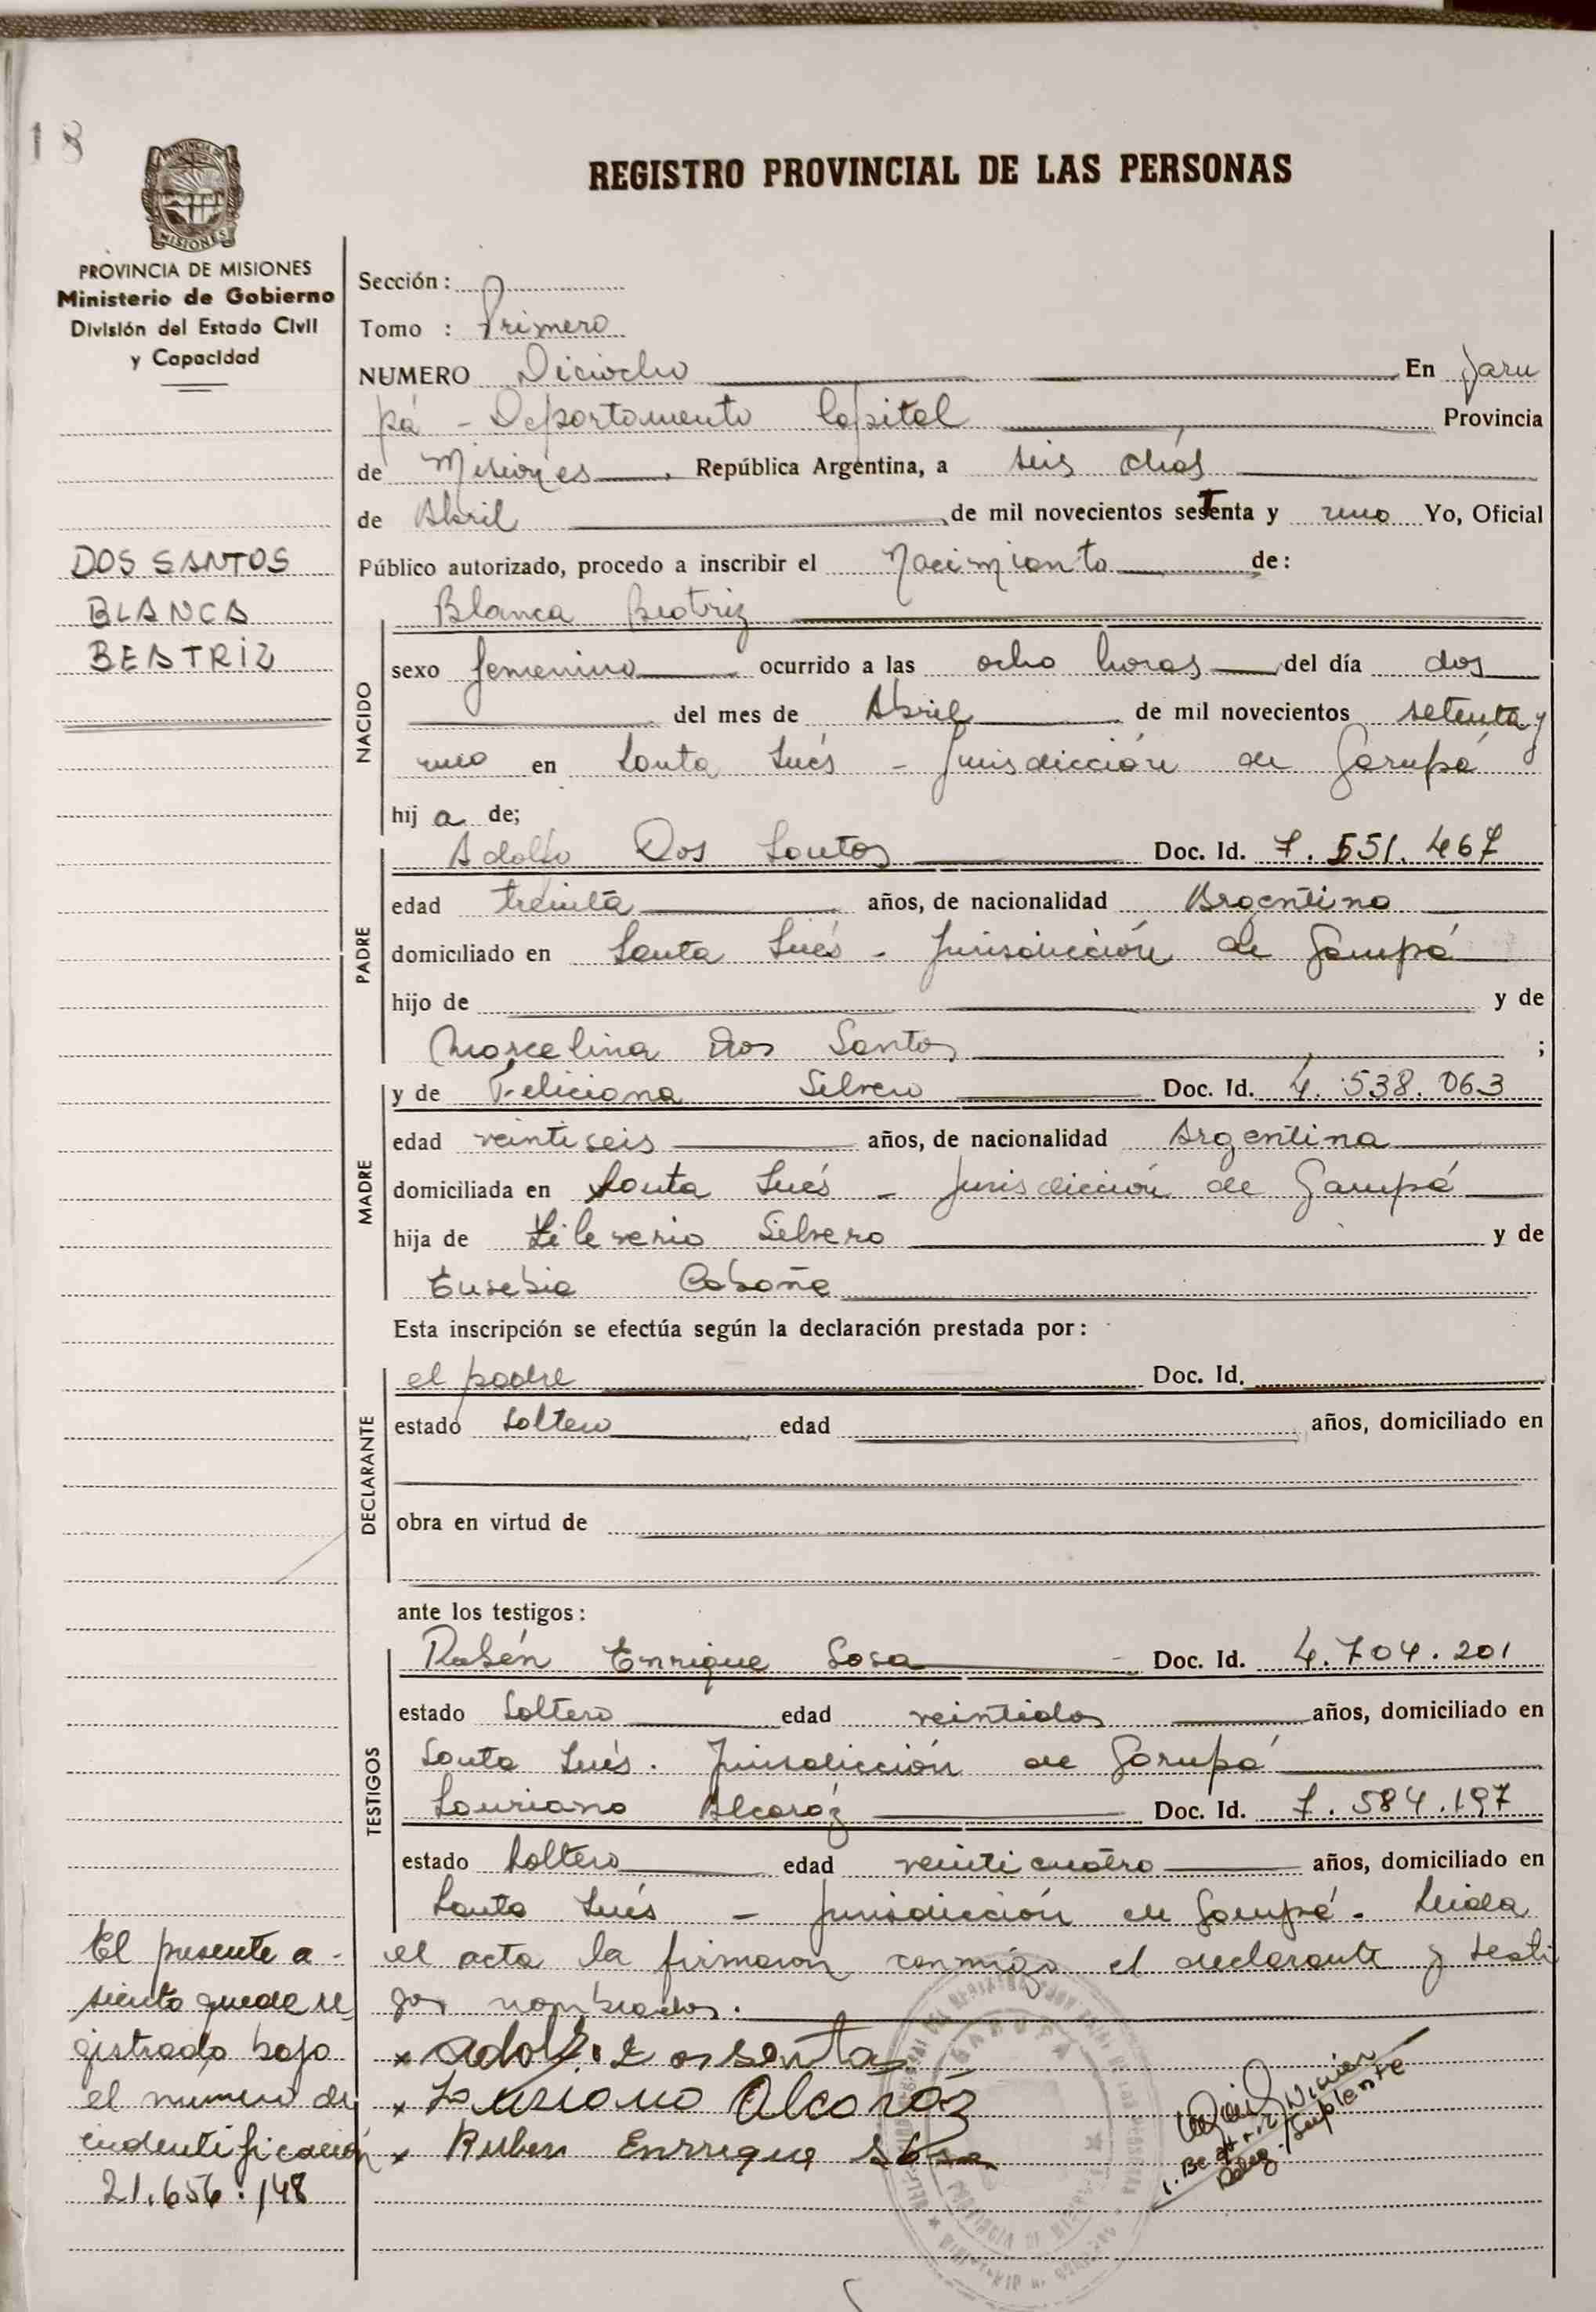 18
PROVINCIA DE MISIONES
REGISTRO PROVINCIAL DE LAS PERSONAS
PROVINCIA DE MISIONES
Ministerio de Gobierno
División del Estado Civil
y Capacidad
DOS SANTOS
BLANCA
BEATRIZ
Sección:
Tomo : Primero
NUMERO Diciocho En Garu
pá - Departamento Capital Provincia
de Misiones, República Argentina, a seis días
de Abril de mil novecientos setenta y uno Yo, Oficial
Público autorizado, procedo a inscribir el Nacimiento de:
NACIDO
Blanca Beatriz
sexo femenino ocurrido a las ocho horas del día dos
del mes de Abril de mil novecientos setenta y
uno en Santa Inés - Jurisdicción de Garupá
hij a de;
PADRE
Adolfo Dos Santos Doc. Id. 7.551.467
edad treinta años, de nacionalidad Argentino
domiciliado en Santa Inés - Jurisdicción de Garupá
hijo de y de
Marcelina Dos Santos ;
MADRE
y de Feliciana Silvero Doc. Id. 4.538.063
edad veintiseis años, de nacionalidad Argentina
domiciliada en Santa Inés - Jurisdicción de Garupá
hija de Silverio Silvero y de
Eusebia Cabaña
Esta inscripción se efectúa según la declaración prestada por:
DECLARANTE
el padre Doc. Id.
estado soltero edad años, domiciliado en
obra en virtud de
ante los testigos:
TESTIGOS
Rubén Enrique Sosa Doc. Id. 4.704.201
estado Soltero edad veintidos años, domiciliado en
Santa Inés. Jurisdicción de Garupá
Lauriano Alcaráz Doc. Id. 7.584.197
estado Soltero edad veinticuatro años, domiciliado en
Santa Inés - Jurisdicción de Garupá. Leida
el acta la firmaron conmigo el declarante y testi
gos nombrados.
x Adolfo dos santos
x Lauriano Alcaráz
x Ruben Enrrique Sosa
Suplente
El presente a-
siento queda re
gistrado bajo
el número de
indentificación
21.656.148